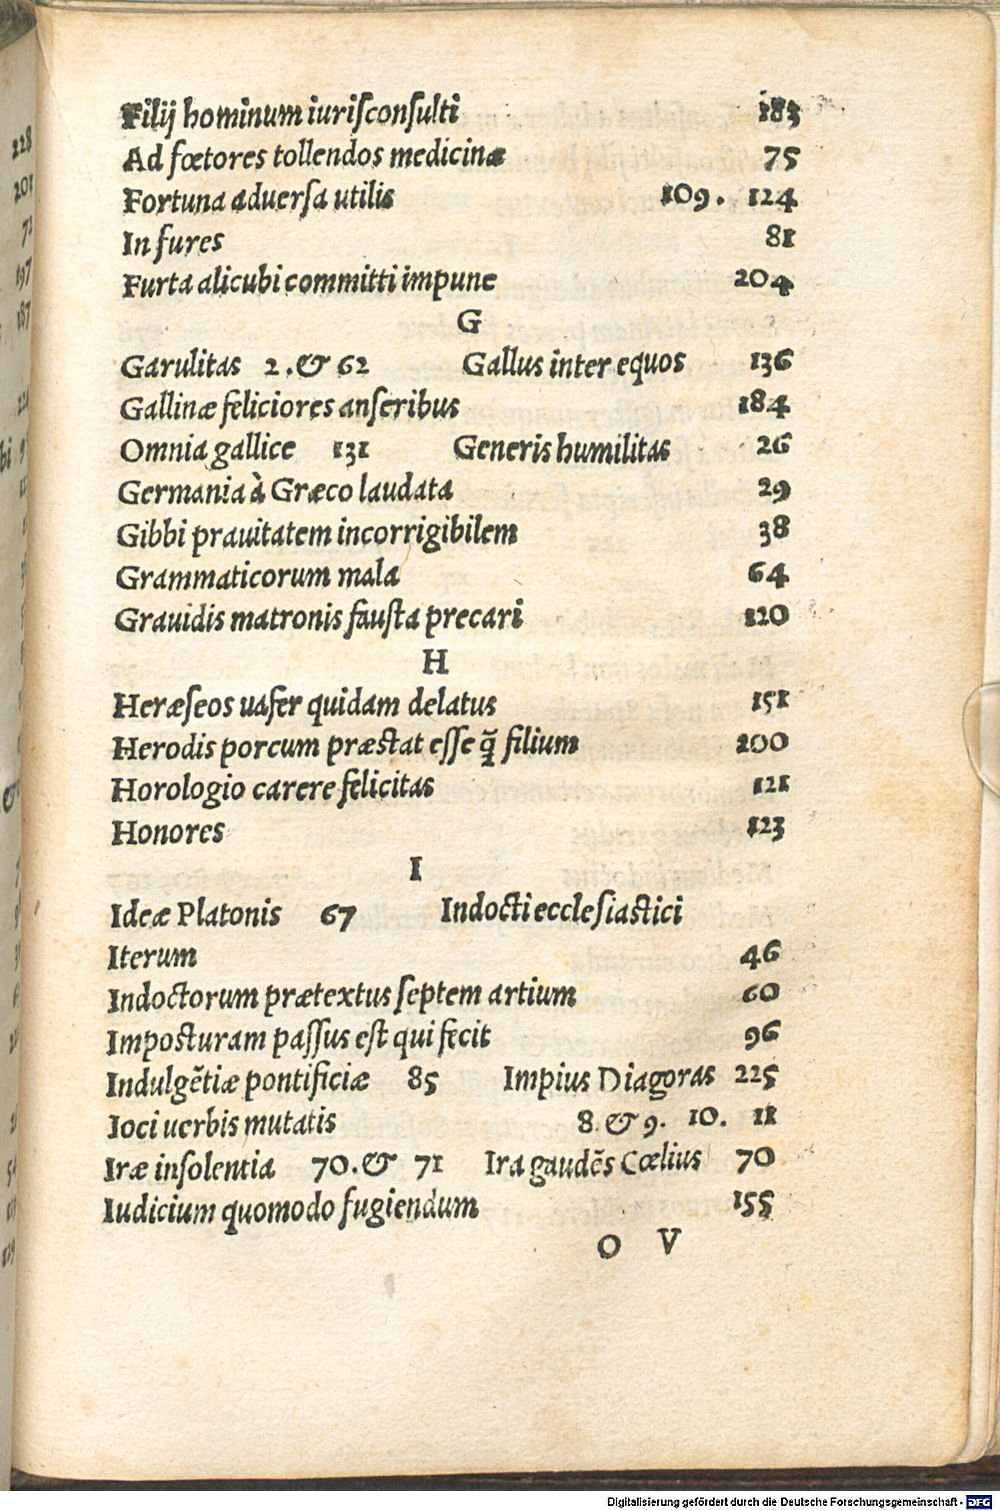 Filij hominum iuriſconſulti 183
Ad fœtores tollendos medicinæ 75
Fortuna aduerſa utilis 109. 124
In fures 81
Furta alicubi committi impune 204
G
Garulitas 2. & 62 Gallus inter equos 136
Gallinæ feliciores anſeribus 184
Omnia gallice 131 Generis humilitas 26
Germania à Græco laudata 29
Gibbi prauitatem incorrigibilem 38
Grammaticorum mala 64
Grauidis matronis fauſta precari 120
H
Heræſeos uafer quidam delatus 151
Herodis porcum præſtat eſſe q̃ filium 200
Horologio carere felicitas 121
Honores 123
I
Ideæ Platonis 67 Indocti eccleſiaſtici
Iterum 46
Indoctorum prætextus ſeptem artium 60
Impoſturam paſſus eſt qui fecit 96
Indulgẽtiæ pontificiæ 85 Impius Diagoras 225
Ioci uerbis mutatis 8. & 9. 10. 11
Iræ inſolentia 70. & 71 Ira gaudẽs Cœlius 70
Iudicium quomodo fugiendum 155
O V
228
201
72
197
187
Digitalisierung gefördert durch die Deutsche Forschungsgemeinschaft - DFG